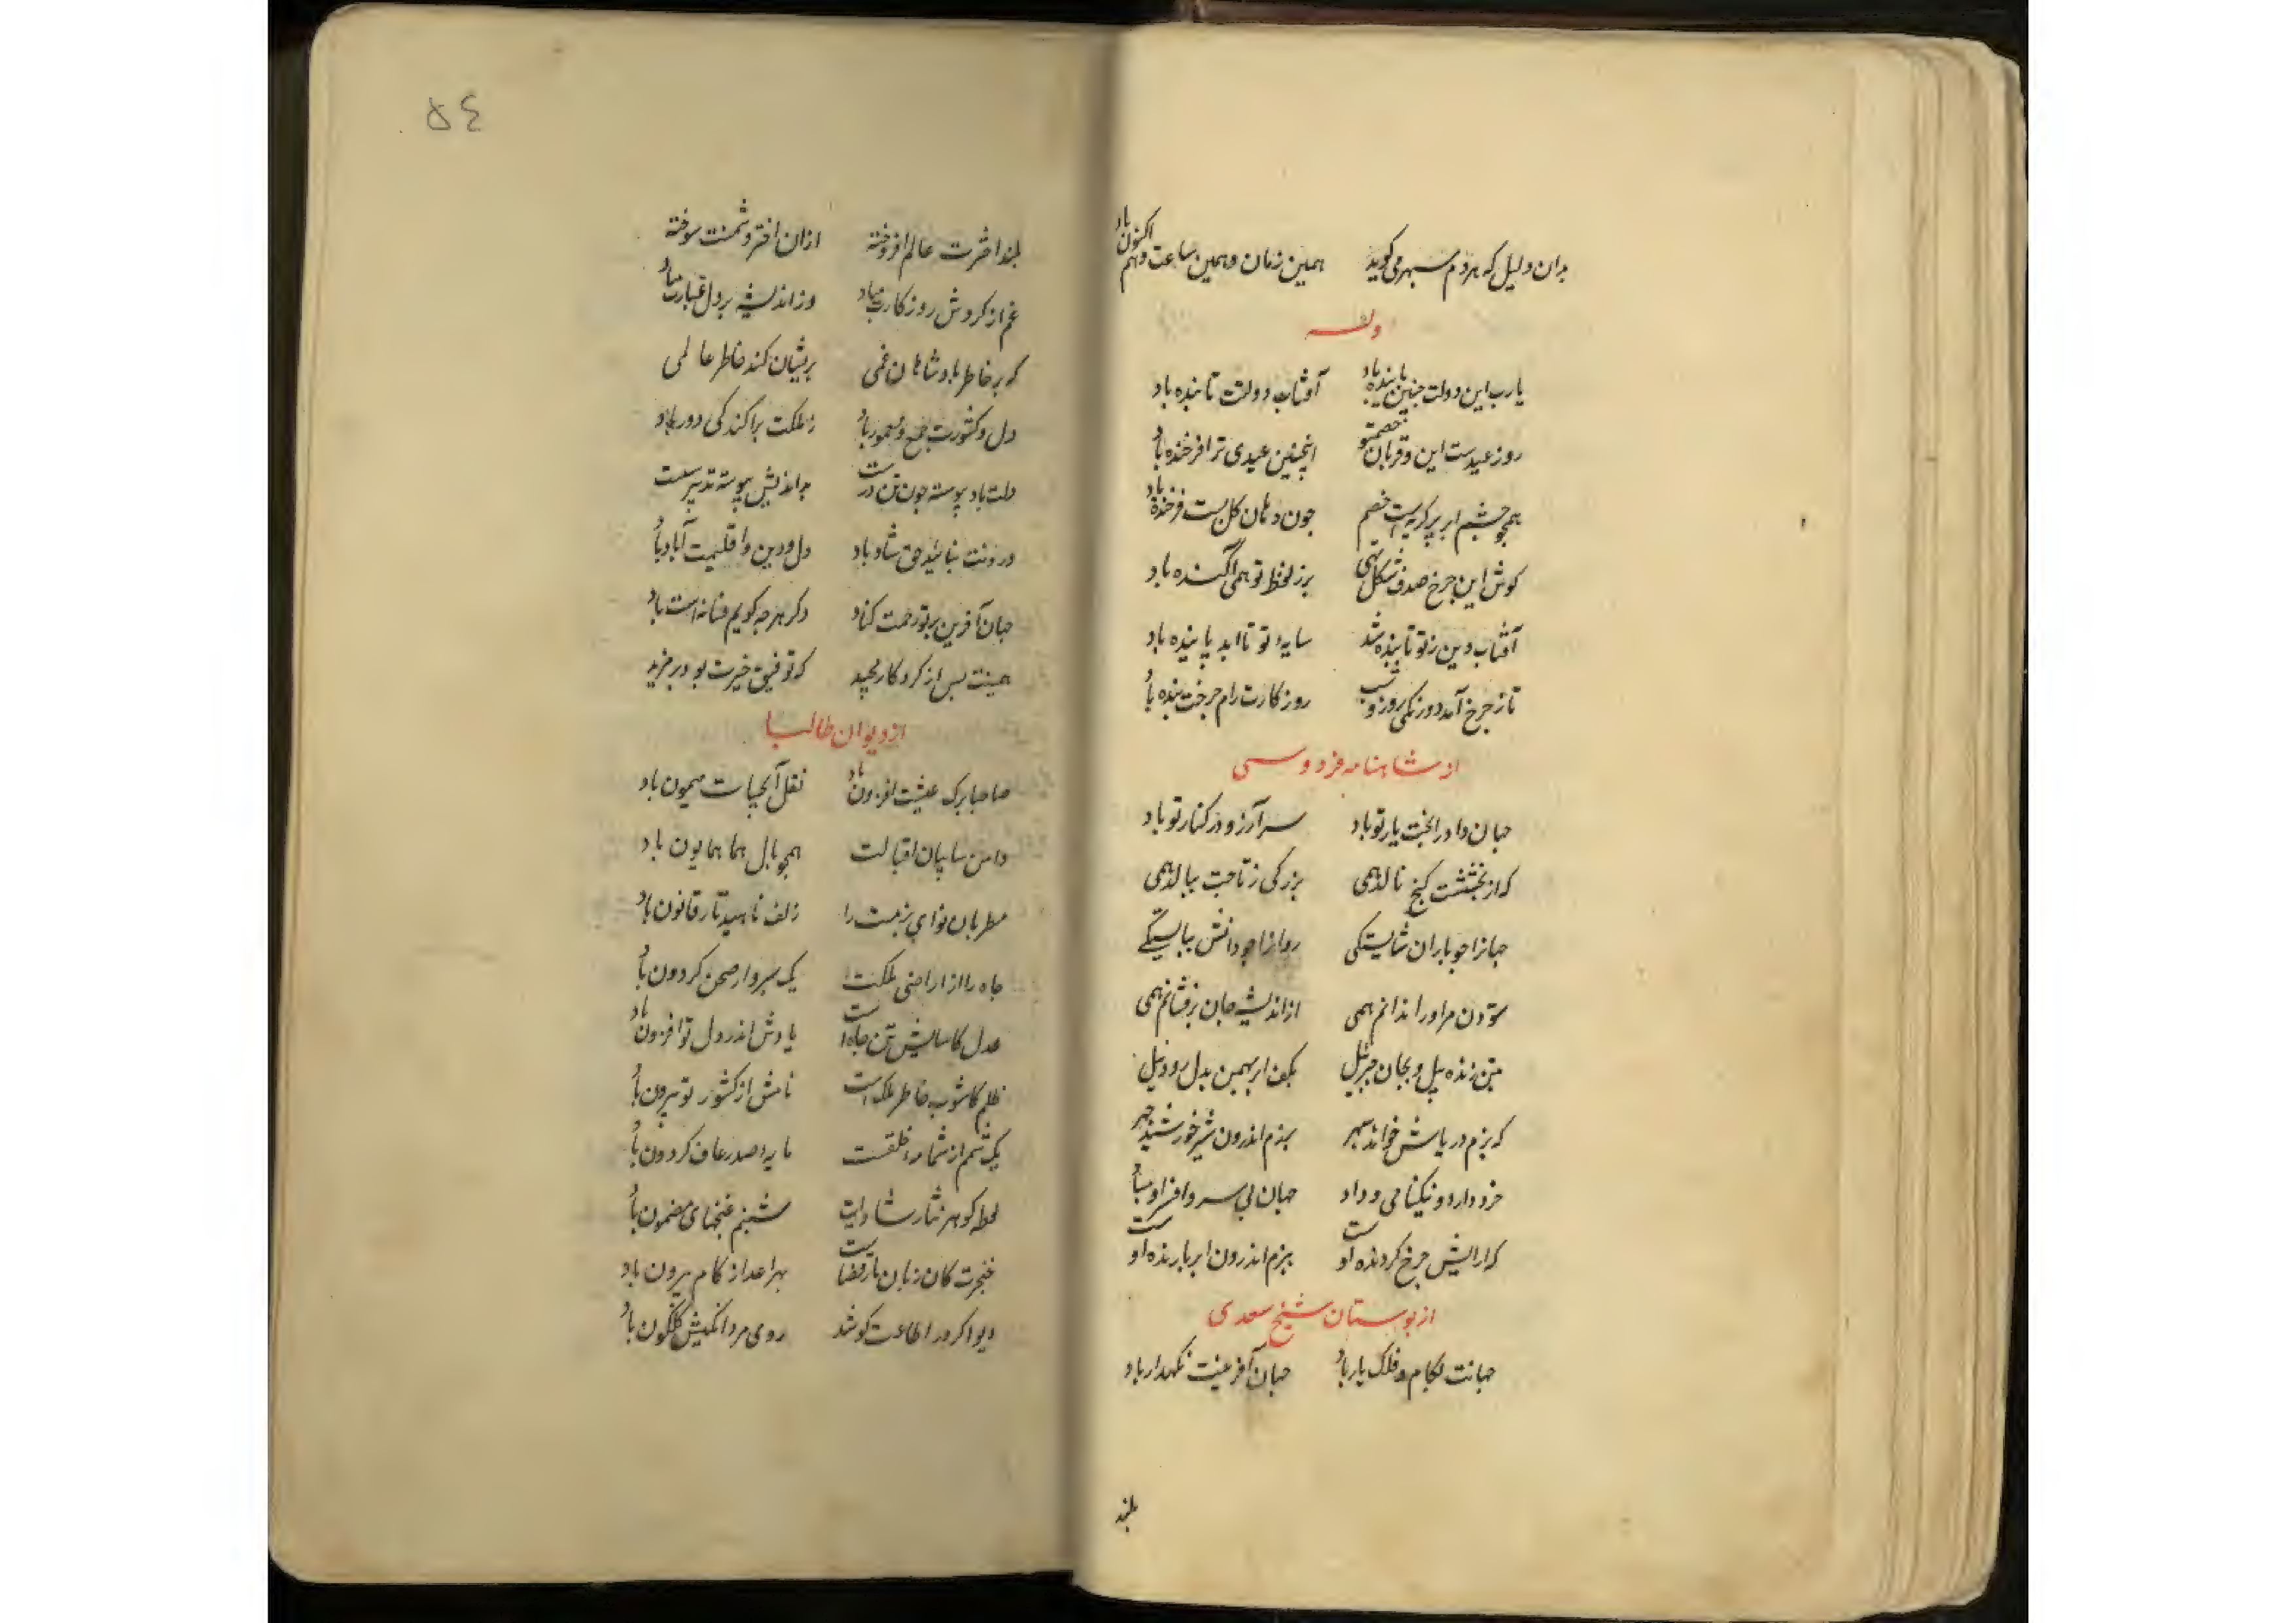 بدان دلیل که هر دم سپهر می گوید همین زمان و همین ساعت و هم اکنون باد
وله
یارب این دولت چنین پاینده باد آفتاب دولتت تابنده باد
روز عیدست این و قربان خصمتو اینچنین عیدی ترا فرخنده باد
همچو چشم ابر پر گریه است خصم چون دهان گل لبت فرخنده باد
گوش این چرخ صدف شکل تهی بر ز لفظ تو همی آگنده باد
آفتاب دین ز تو تابنده شد سایهٔ تو تا ابد پاینده باد
تا ز چرخ آمد دو رنگی روز و شب روزگارت رام چرخت بنده باد
از شاهنامه فردوسی
جهان دادر ابخت یار تو باد سر آرزو در کنار تو باد
که از بخششت گنج نالد همی بزرگی ز تاجت ببالد همی
جهانرا چو باران شایستگی روانرا چو دانش ببایستگی
ستودن مر او را ندانم همی از اندیشه جان برفشانم همی
بتن زنده پیل و بجان جبرئیل بکف ابر بهمن بدل رود نیل
که بزم دریاش خواند سپهر برزم اندرون شیر خورشید چهر
خرد دارد و نیکنامی و داد جهان بی سر و افسر او مباد
که آرایش چرخ گردنده اوست ببزم اندرون ابر بارنده اوست
از بوستان شیخ سعدی
جهانت بکام و فلک یار باد جهان آفرینت نگهدار باد
بلند
٥٤
بلند اخترت عالم افروخته ازان اختر دشمنت سوخته
غم از گردش روزگارت مباد وز اندیشه بر دل غبارت مباد
که بر خاطر پادشاهان غمی پریشان کند خاطر عالمی
دل و کشورت جمع و معمور باد ز ملکت پراکندگی دور باد
دلت باد پیوسته چون تن درست بداندیش پیوسته تدبیر سست
درونت بتائید حق شاد باد دل و دین و اقلیمت آباد باد
جهان آفرین بر تو رحمت کناد دگر هر چه گویم فسانه است باد
همینت بس از کردگار مجید که توفیق خیرت بود بر مزید
از دیوان طالبا
صاحبا برگ عیشت افزون باد نقل آبحیات میمون باد
دامن سایبان اقبالت همچو بال هما همایون باد
مطربان نوای بزمت را زلف ناهید تار قانون باد
جاه را از اراضی ملکت یک سپروار صحن گردون باد
عدل کاسایش تن جاه است یادش اندر دل تو افزون باد
ظلم کاشوب خاطر ملک است نامش از کشور تو بیرون باد
یک شم از شمامهٔ خلقت مایهٔ صد رعاف گردون باد
شبنم غنچهای مضمون باد
خنجرت کان زبان مار قضاست بهر اعدا ز کام بیرون باد
دیو اگر در اطاعت کوشد روی مردانگیش گلگون باد